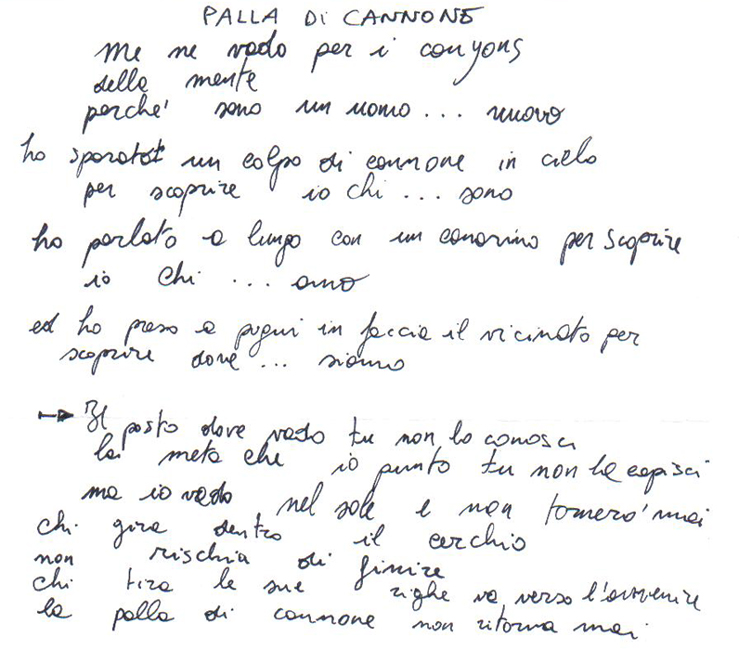 PALLA Di CANNONE
me ne vado per i canyons
della mente
perche' sono un uomo... nuovo
ho sparato un colpo di cannone in cielo
per scoprire io chi... sono
ho parlato a lungo con un canarino per scoprire
io chi... amo
ed ho preso a pugni in faccia il vicinato per
scoprire dove... siamo
→ Il posto dove vado tu non lo conosci
la meta che io punto tu non la capisci
ma io vado nel sole e non tornero' mai
chi gira dentro il cerchio
non rischia di finire
chi tira le sue righe va verso l'avvenire
la palla di cannone non ritorna mai